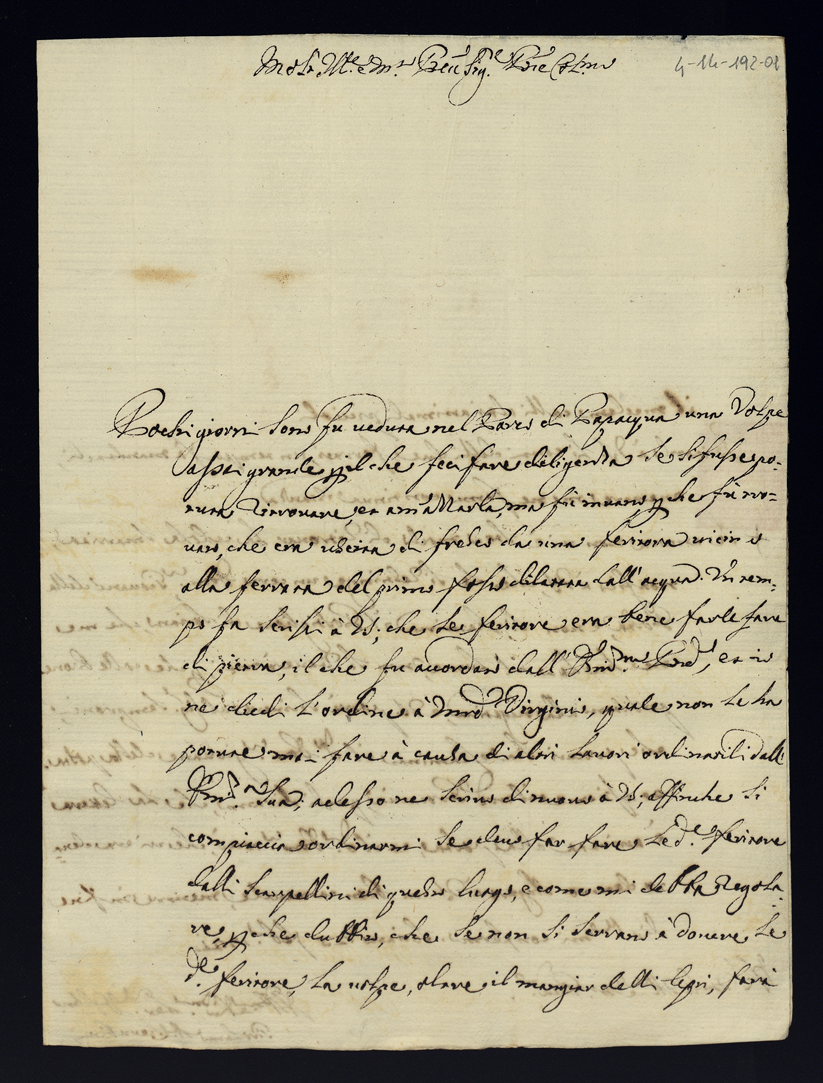 Molt' Ill.re e m.to Rev. Sig.re P.rone Col.mo
4-14-192-01
Pochi giorni sono fu veduta nel Parco di Papacqua una Volpe
assai grande, per il che feci fare deligenza se si fusse po-
tuta ritrovare, et amazzarla, ma fù invano, perche fù tro-
vato, che era uscita di fresco da una feritora vicino
alla ferrata del primo fosso dilatata dall'acqua. Un tem-
po fa scrissi à VS; che le feritore era bene farle fare
di pietra, il che fu accordato dall' Em.mo P.rone, et io
ne diedi l'ordine à m.ro Virginio, quale non le ha
potute mai fare à causa di altri lavori ordinatili dall'
Em.za Sua; adesso ne scrivo di nuovo à VS; affinche si
compiaccia ordinarmi se devo far fare le d.e feritore
dalli scarpellini di questo luogo, e come mi debba regola-
re, perche dubbito, che se non si serrano à dovere le
d.e feritore, la volpe, oltre il mangiar delli lepri, farà